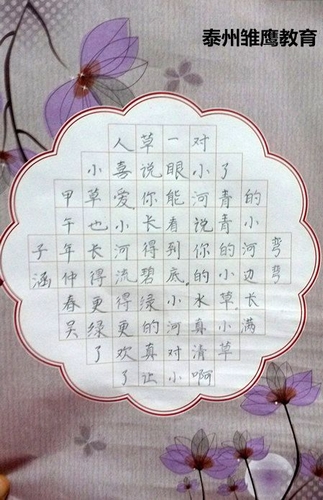 泰州雏鹰教育
人草一对
小喜说眼小了
甲草爱你能河青的
午也小长看说青小
子年长河得到你的河弯
涵仲得流碧底的小边弯
春更得绿小水草长
吴绿更的河真小满
了欢真对清草
了让小啊